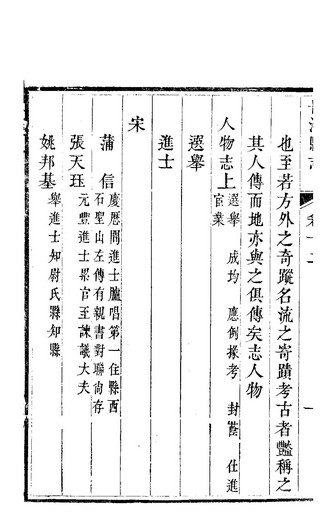 卷十二
一
也至若方外之奇蹤名流之寄蹟考古者豔稱之
其人傳而地亦與之俱傳矣志人物
人物志上 選舉 成均 應例掾考 封廕 仕進
官業
選舉
進士
宋
蒲信 慶厯間進士臚唱第一住縣西
石聖山左傳有親書對聯向存
張天珏 元豐進士累官至諫議大夫
姚邦基 舉進士知尉氏縣知縣